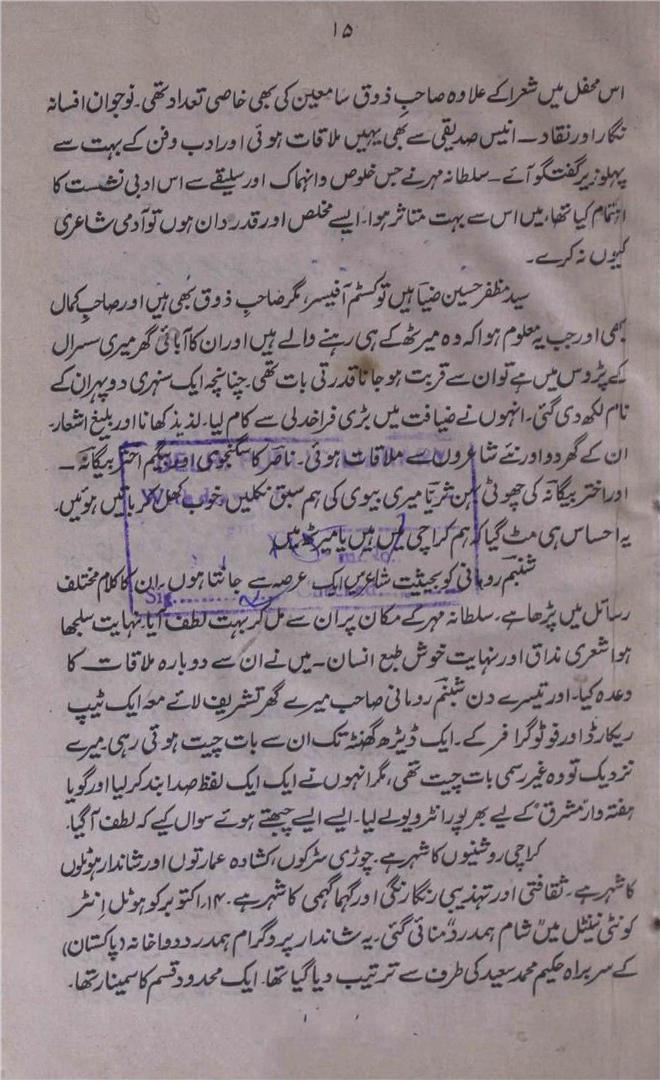 ۱۵
اس محفل میں شعرا کے علاوہ صاحبِ ذوق سامعین کی بھی خاصی تعداد تھی۔ نوجوان افسانہ
نگار اور نقاد۔ انیس صدیقی سے بھی یہیں ملاقات ہوئی اور ادب و فن کے بہت سے
پہلو زیرِ گفتگو آئے۔ سلطانہ مہر نے جس خلوص و انہماک اور سلیقے سے اس ادبی نشست کا
اہتمام کیا تھا، میں اس سے بہت متاثر ہوا۔ ایسے مخلص اور قدر دان ہوں تو آدمی شاعری
کیوں نہ کرے۔
سید مظفر حسین ضیاؔ ہیں تو کسٹم آفیسر، مگر صاحبِ ذوق بھی ہیں اور صاحبِ کمال
بھی اور جب یہ معلوم ہوا کہ وہ میرٹھ کے ہی رہنے والے ہیں اور ان کا آبائی گھر میری سسرال
کے پڑوس میں ہے تو ان سے قربت ہو جانا قدرتی بات تھی۔ چنانچہ ایک سنہری دوپہر ان کے
نام لکھ دی گئی۔ انہوں نے ضیافت میں بڑی فراخدلی سے کام لیا۔ لذیذ کھانا اور بلیغ اشعار۔
ان کے گھر دو اور نئے شاعروں سے ملاقات ہوئی۔ ناصر کاسگنجوی اور بیگم اختر بیگانہ۔
اور اختر بیگانہ کی چھوٹی بہن ثریا میری بیوی کی ہم سبق نکلیں۔ خوب کھل کر باتیں ہوئیں۔
یہ احساس ہی مٹ گیا کہ ہم کراچی میں ہیں یا میرٹھ میں
شبنمؔ رومانی کو بحیثیت شاعر میں ایک عرصہ سے جانتا ہوں۔ ان کا کلام مختلف
رسائل میں پڑھا ہے۔ سلطانہ مہر کے مکان پر ان سے مل کر بہت لطف آیا۔ نہایت سلجھا
ہوا شعری مذاق اور نہایت خوش طبع انسان۔ میں نے ان سے دوبارہ ملاقات کا
وعدہ کیا۔ اور تیسرے دن شبنمؔ رومانی صاحب میرے گھر تشریف لائے معہ ایک ٹیپ
ریکارڈ اور فوٹو گرافر کے۔ ایک ڈیڑھ گھنٹہ تک ان سے بات چیت ہوتی رہی۔ میرے
نزدیک تو وہ غیر رسمی بات چیت تھی، مگر انہوں نے ایک ایک لفظ صدا بند کر لیا اور گویا
ہفتہ وار "مشرق" کے لیے بھرپور انٹرویو لے لیا۔ ایسے ایسے چبھتے ہوئے سوال کیے کہ لطف آ گیا۔
کراچی روشنیوں کا شہر ہے۔ چوڑی سڑکوں، کشادہ عمارتوں اور شاندار ہوٹلوں
کا شہر ہے۔ ثقافتی اور تہذیبی رنگارنگی اور گہما گہمی کا شہر ہے۔ ۱۴؍ اکتوبر کو ہوٹل انٹر
کونٹی نینٹل میں "شام ہمدرد" منائی گئی۔ یہ شاندار پروگرام ہمدرد دواخانہ (پاکستان)
کے سربراہ حکیم محمد سعید کی طرف سے ترتیب دیا گیا تھا۔ ایک محدود قسم کا سمینار تھا۔